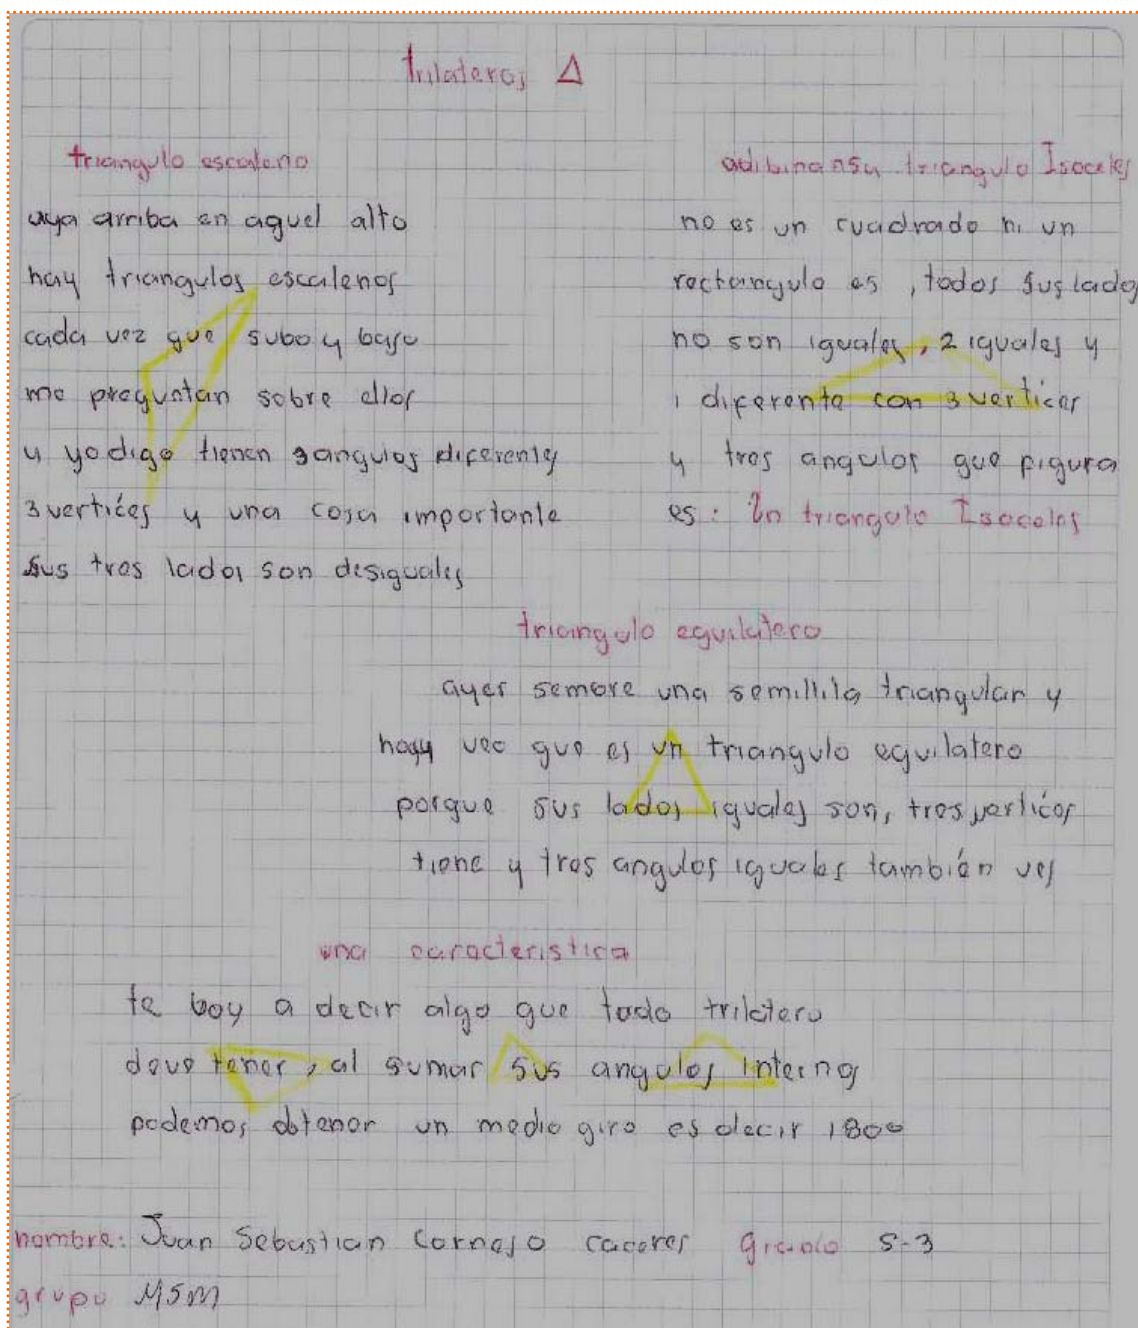 trilateros Δ
triangulo escaleno
aya arriba en aquel alto
hay triangulos escalenos
cada vez que subo y bajo
me preguntan sobre ellos
y yo digo tienen 3 angulos diferentes
3 vertices y una cosa importante
sus tres lados son desiguales
adibinansa triangulo Isoceles
no es un cuadrado ni un
rectangulo es, todos sus lados
no son iguales, 2 iguales y
1 diferente con 3 vertices
y tres angulos que pigura
es: Un triangulo Isoceles
triangulo equilatero
ayer sembre una semillita triangular y
hoy veo que es un triangulo equilatero
porque sus lados iguales son, tres vertices
tiene y tres angulos iguales también ves
una caracteristica
te boy a decir algo que todo trilatero
deve tener, al sumar sus angulos internos
podemos obtener un medio giro es decir 180°
nombre: Juan Sebastian Cornejo caceres grado 5-3
grupo MSM